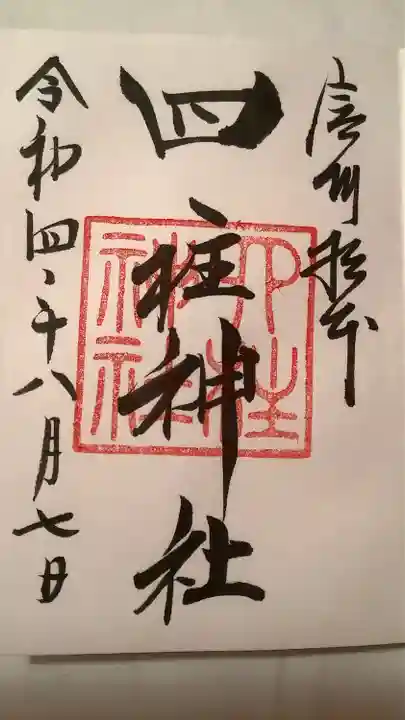 信州松本
四柱神社
四柱
神社
令和四年八月七日